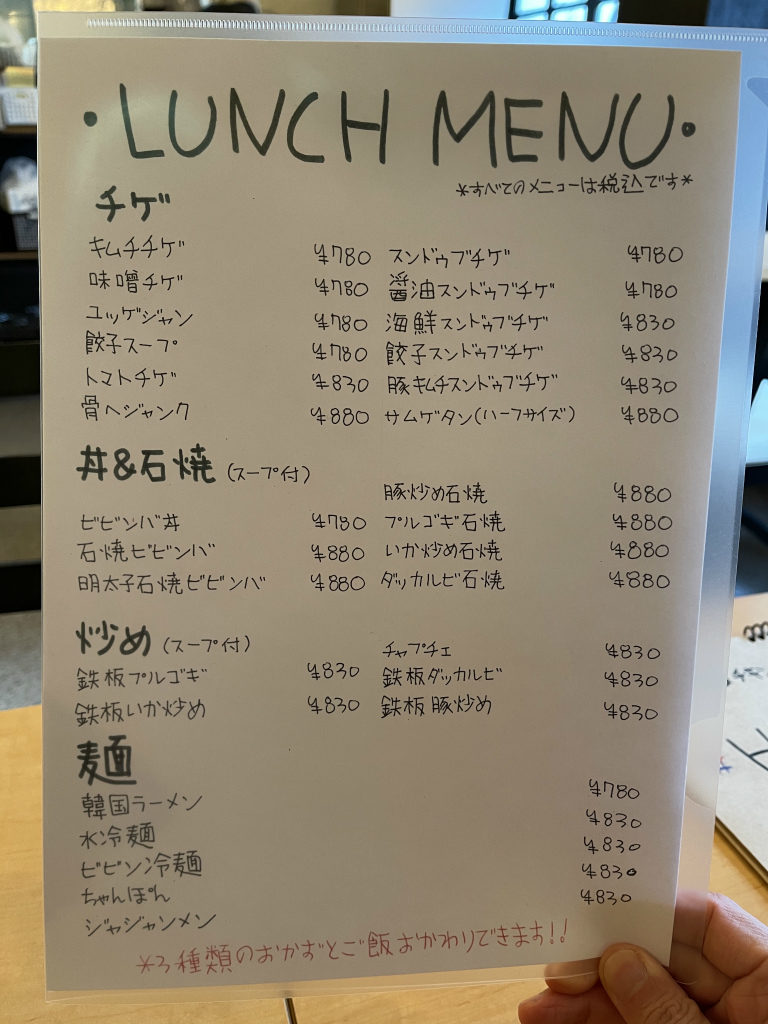 ・LUNCH MENU・
*すべてのメニューは税込です*
チゲ
キムチチゲ ¥780
味噌チゲ ¥780
ユッゲジャン ¥780
餃子スープ ¥780
トマトチゲ ¥830
骨ヘジャンク ¥880
スンドゥブチゲ ¥780
醤油スンドゥブチゲ ¥780
海鮮スンドゥブチゲ ¥830
餃子スンドゥブチゲ ¥830
豚キムチスンドゥブチゲ ¥830
サムゲタン(ハーフサイズ) ¥880
丼&石焼(スープ付)
ビビンバ丼 ¥780
石焼ビビンバ ¥880
明太子石焼ビビンバ ¥880
豚炒め石焼 ¥880
プルゴギ石焼 ¥880
いか炒め石焼 ¥880
ダッカルビ石焼 ¥880
炒め(スープ付)
鉄板プルゴギ ¥830
鉄板いか炒め ¥830
チャプチェ ¥830
鉄板ダッカルビ ¥830
鉄板豚炒め ¥830
麺
韓国ラーメン ¥780
水冷麺 ¥830
ビビン冷麺 ¥830
ちゃんぽん ¥830
ジャジャンメン ¥830
*3種類のおかずとご飯おかわりできます!!